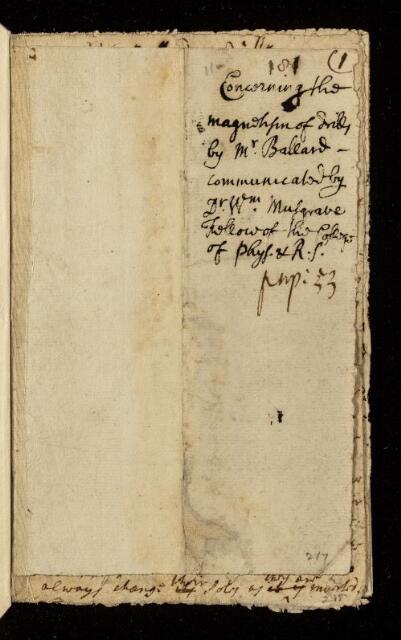 181 (1
Concerning the
magnetism of Drills
by Mr. Ballard –
communicated by
Dr. Wm. Musgrave
Fellow of the College
of Phys. & R. S.
pap: 53
217
always change their Poles as they are inverted.